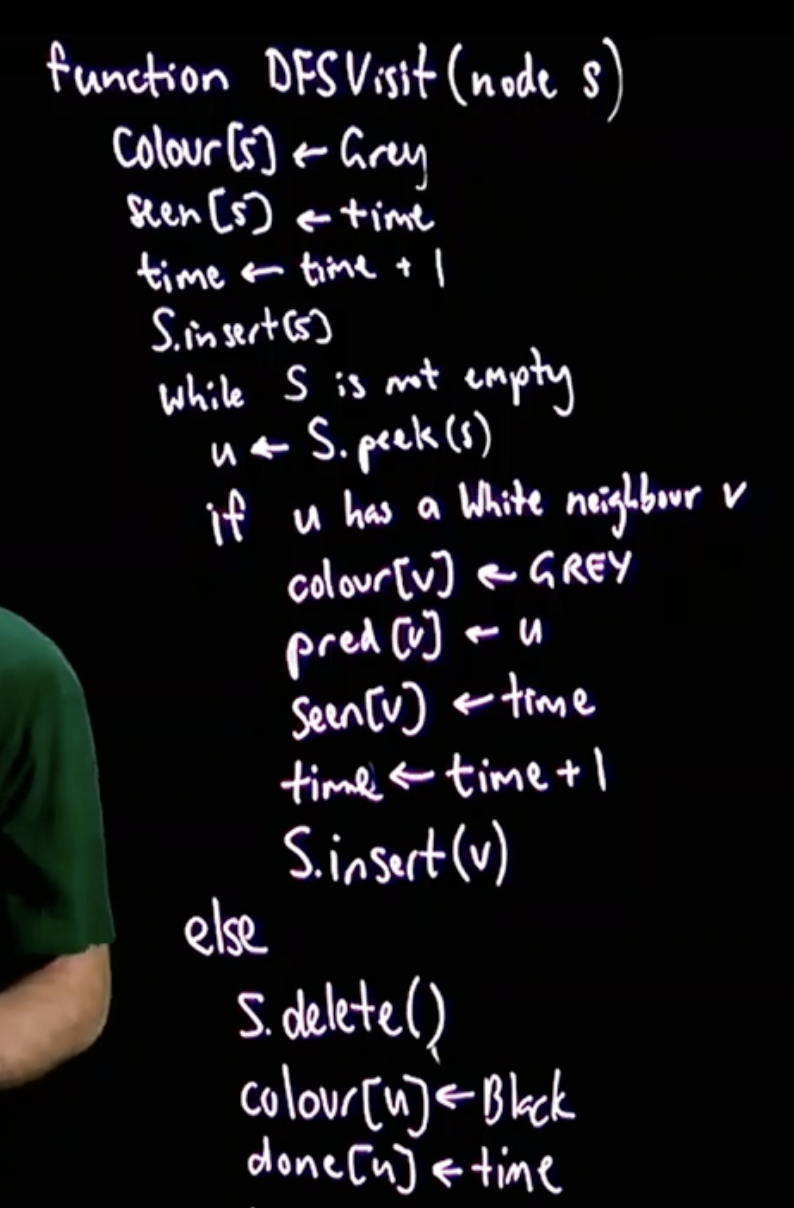 function DFSVisit(node s)
colour[s] ← Grey
seen[s] ← time
time ← time + 1
S.insert(s)
while S is not empty
u ← S.peek(s)
if u has a White neighbour v
colour[v] ← GREY
pred[v] ← u
seen[v] ← time
time ← time + 1
S.insert(v)
else
S.delete()
colour[u] ← Black
done[u] ← time